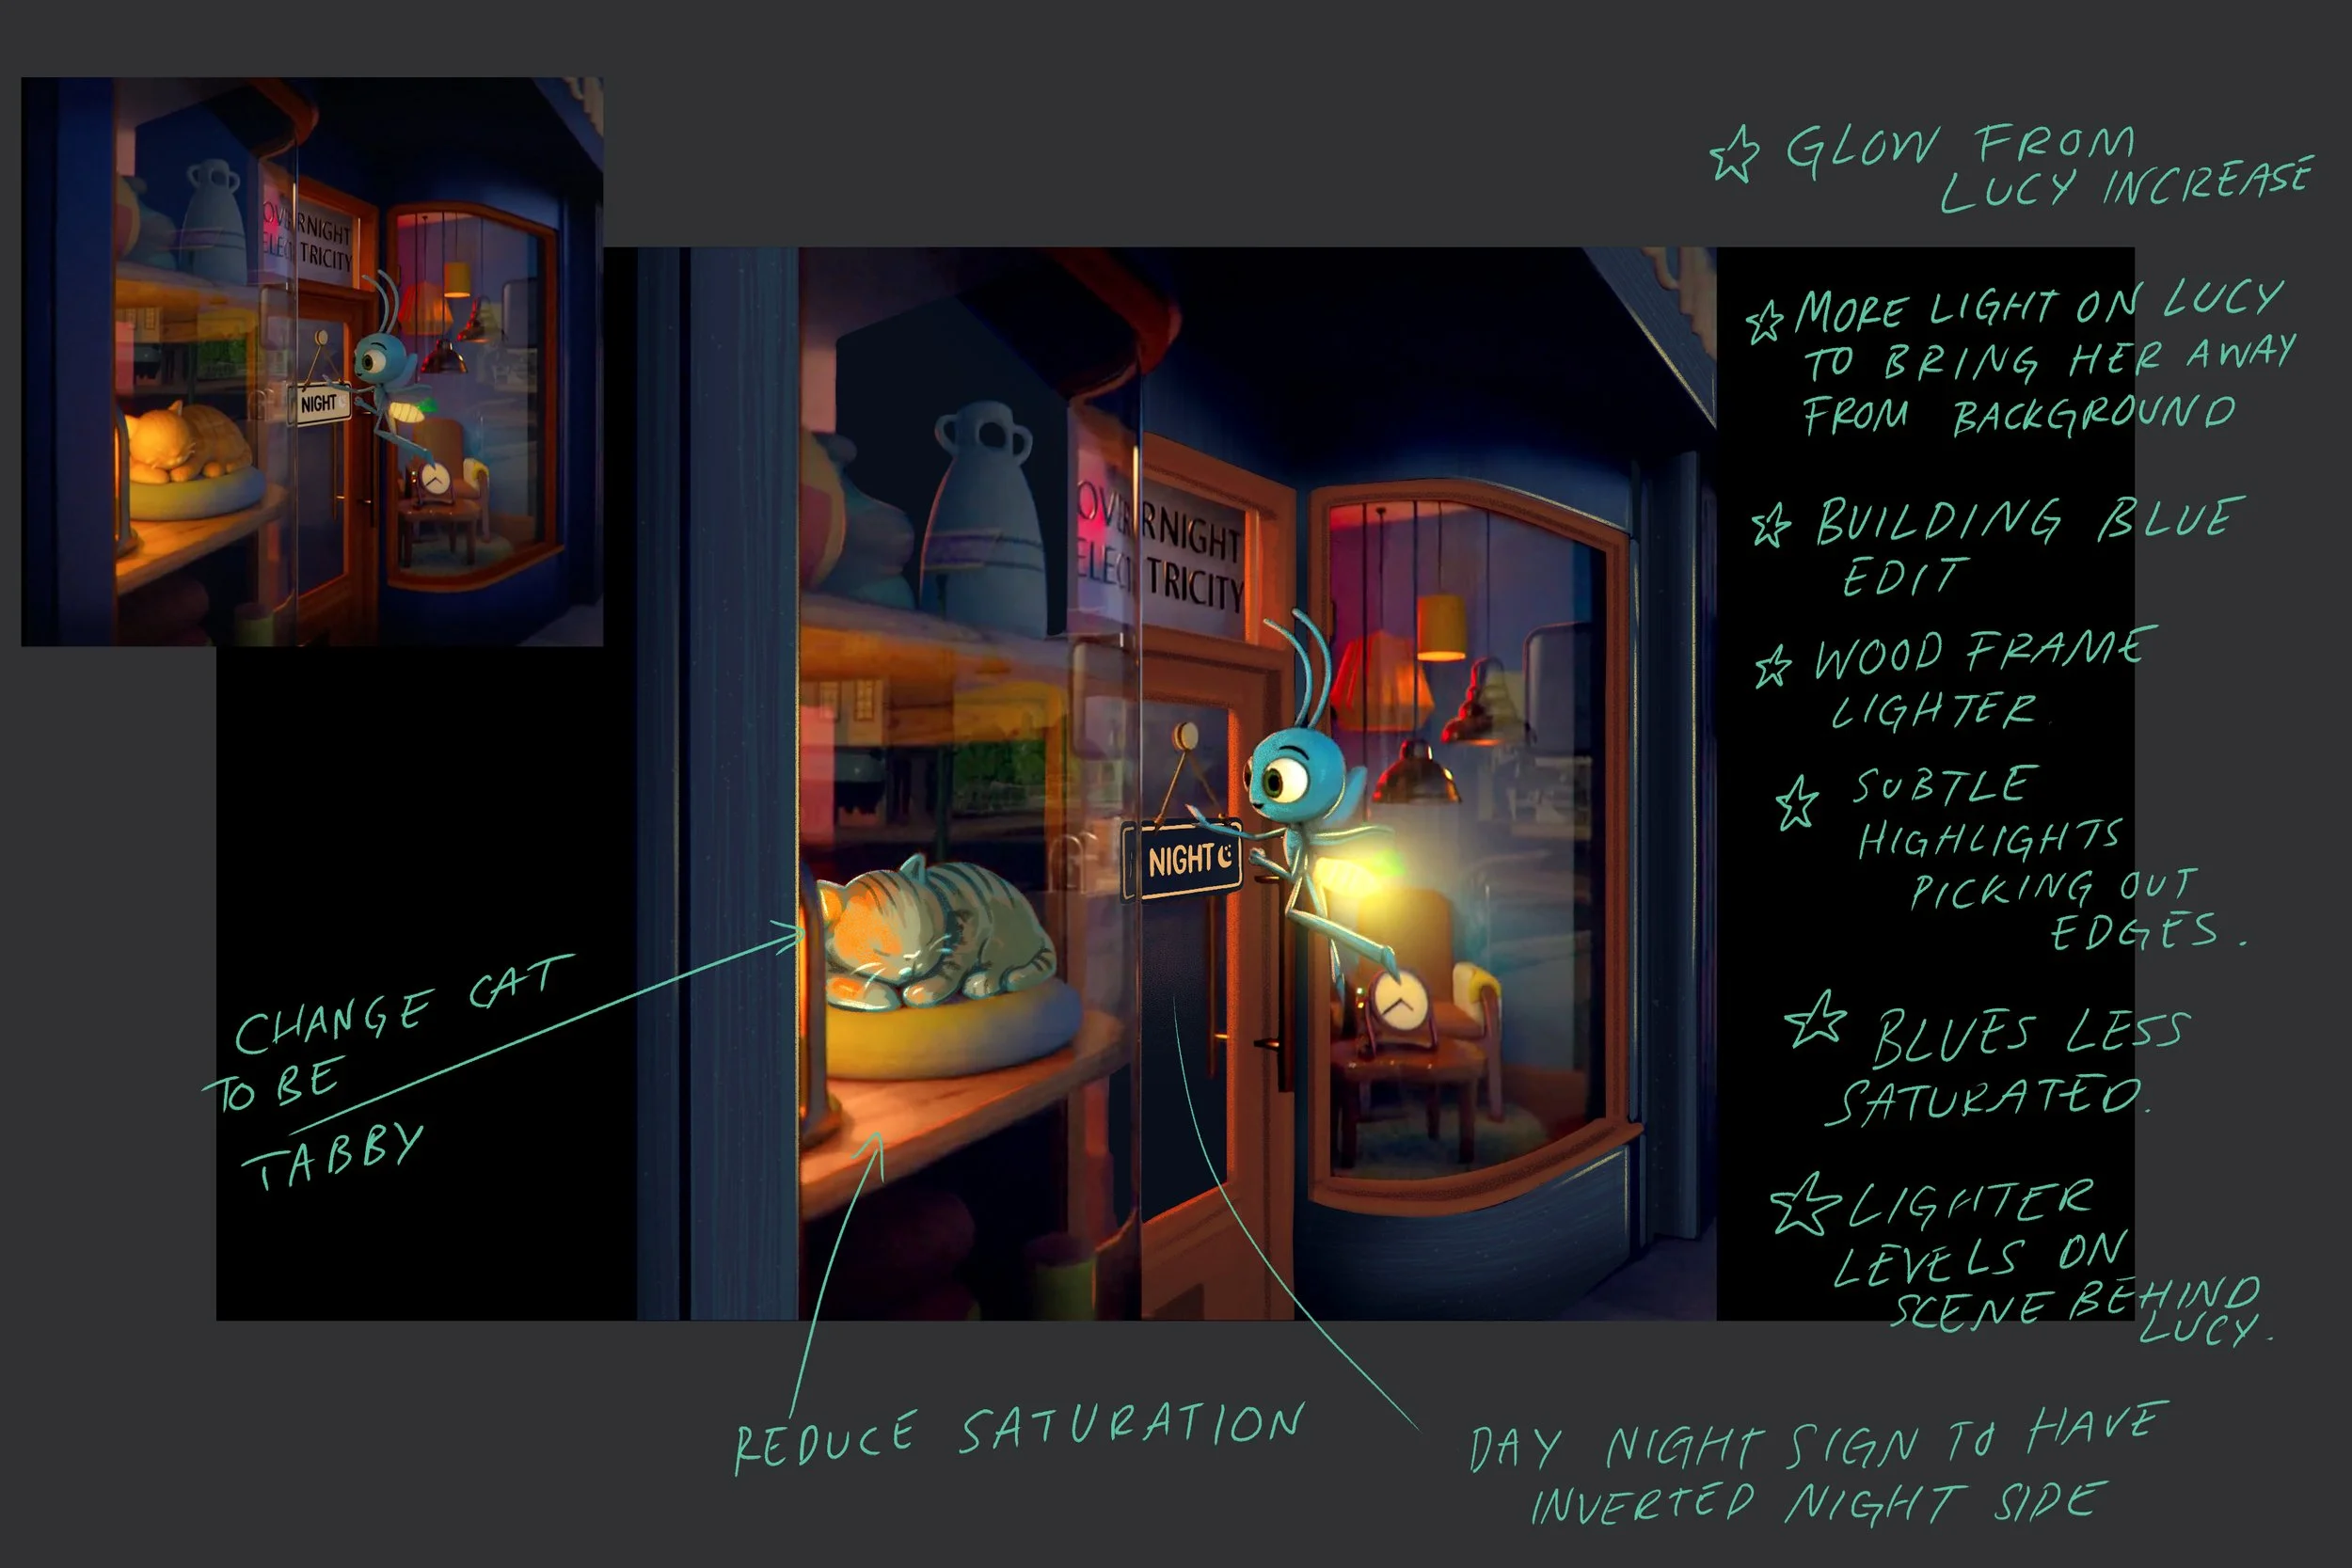 OVERNIGHT
ELECTRICITY
NIGHT
☆ GLOW FROM
LUCY INCREASE
☆ MORE LIGHT ON LUCY
TO BRING HER AWAY
FROM BACKGROUND
☆ BUILDING BLUE
EDIT
☆ WOOD FRAME
LIGHTER.
☆ SUBTLE
HIGHLIGHTS
PICKING OUT
EDGES.
☆ BLUES LESS
SATURATED.
☆ LIGHTER
LEVELS ON
SCENE BEHIND
LUCY.
OVERNIGHT
ELECTRICITY
NIGHT
CHANGE CAT
TO BE
TABBY
REDUCE SATURATION
DAY NIGHT SIGN TO HAVE
INVERTED NIGHT SIDE